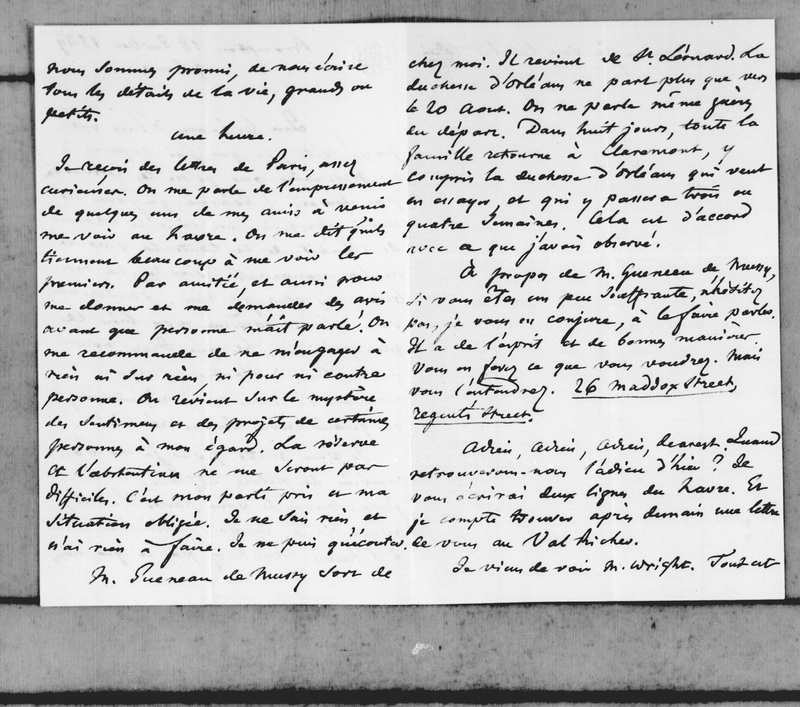 nous sommes promis, de nous écrire
tous les détails de la vie, grands ou
petits.
Une heure.
Je reçois des lettres de Paris, assez
curieuses. On me parle de l'empressement
de quelques uns de mes amis à venir
me voir au havre. On me dit qu'ils
tiennent beaucoup à me voir les
premiers. Par amitié, et aussi pour
me donner et me demander des avis
avant que personne m'ait parlé. On
me recommande de ne m'engager à
rien ni sur rien, ni pour ni contre
personne. On revient sur le mystère
des sentimens et des projets de certaines
personnes à mon égard. La réserve
et l'abstention ne me seront pas
difficiles. C'est mon parti pris et ma
situation obligée. Je ne sais rien et
n'ai rien à faire. Je ne puis qu'écouter.
M. Gueneau de Mussy sort de
chez moi. Il revient de St. Léonard. La
duchesse d'Orléans ne part plus que vers
le 20 Aout. On ne parle même guères
du départ. Dans huit jours, toute la
famille retourne à Claremont, y
compris la duchesse d'Orléans qui veut
en essayer, et qui y passera trois ou
quatre semaines. Cela est d'accord
avec ce que j'avois observé.
À propos de M. Gueneau de Mussy,
si vous êtes un peu souffrante, n'hésitez
pas, je vous en conjure, à le faire parler.
Il a de l'esprit et de bonnes manières.
Vous en ferez ce que vous voudrez. Mais
vous l'entendrez. 26 Maddox Street,
regent's Street.
Adieu, adieu, adieu, dearest. Quand
retrouverons-nous l'adieu d'hier ? Je
vous écrirai deux lignes du havre. Et
je compte trouver après demain une lettre
de vous au Val Richer.
Je viens de voir M. Wright. Tout est